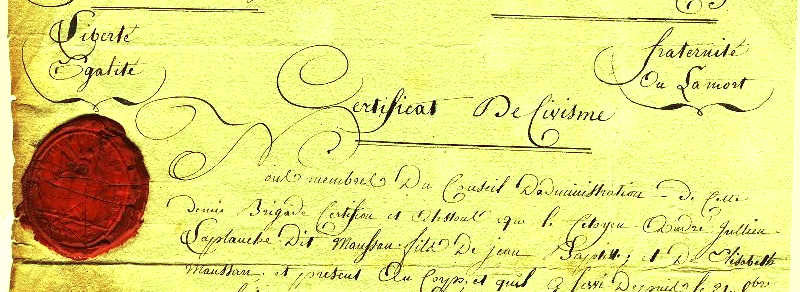 Liberté
Egalité
fraternité
Ou Lamort
Certificat De Civisme
Nous membres Du Conseil Dadministration de Cette
demie Brigade Certifion et attestons que le Citoyen André Jullien
Laplanche Dit Maussan fils De jean Baptte; et De Elisabeth
Maussan et present Au Corps, et quil a servi Depuis le 21